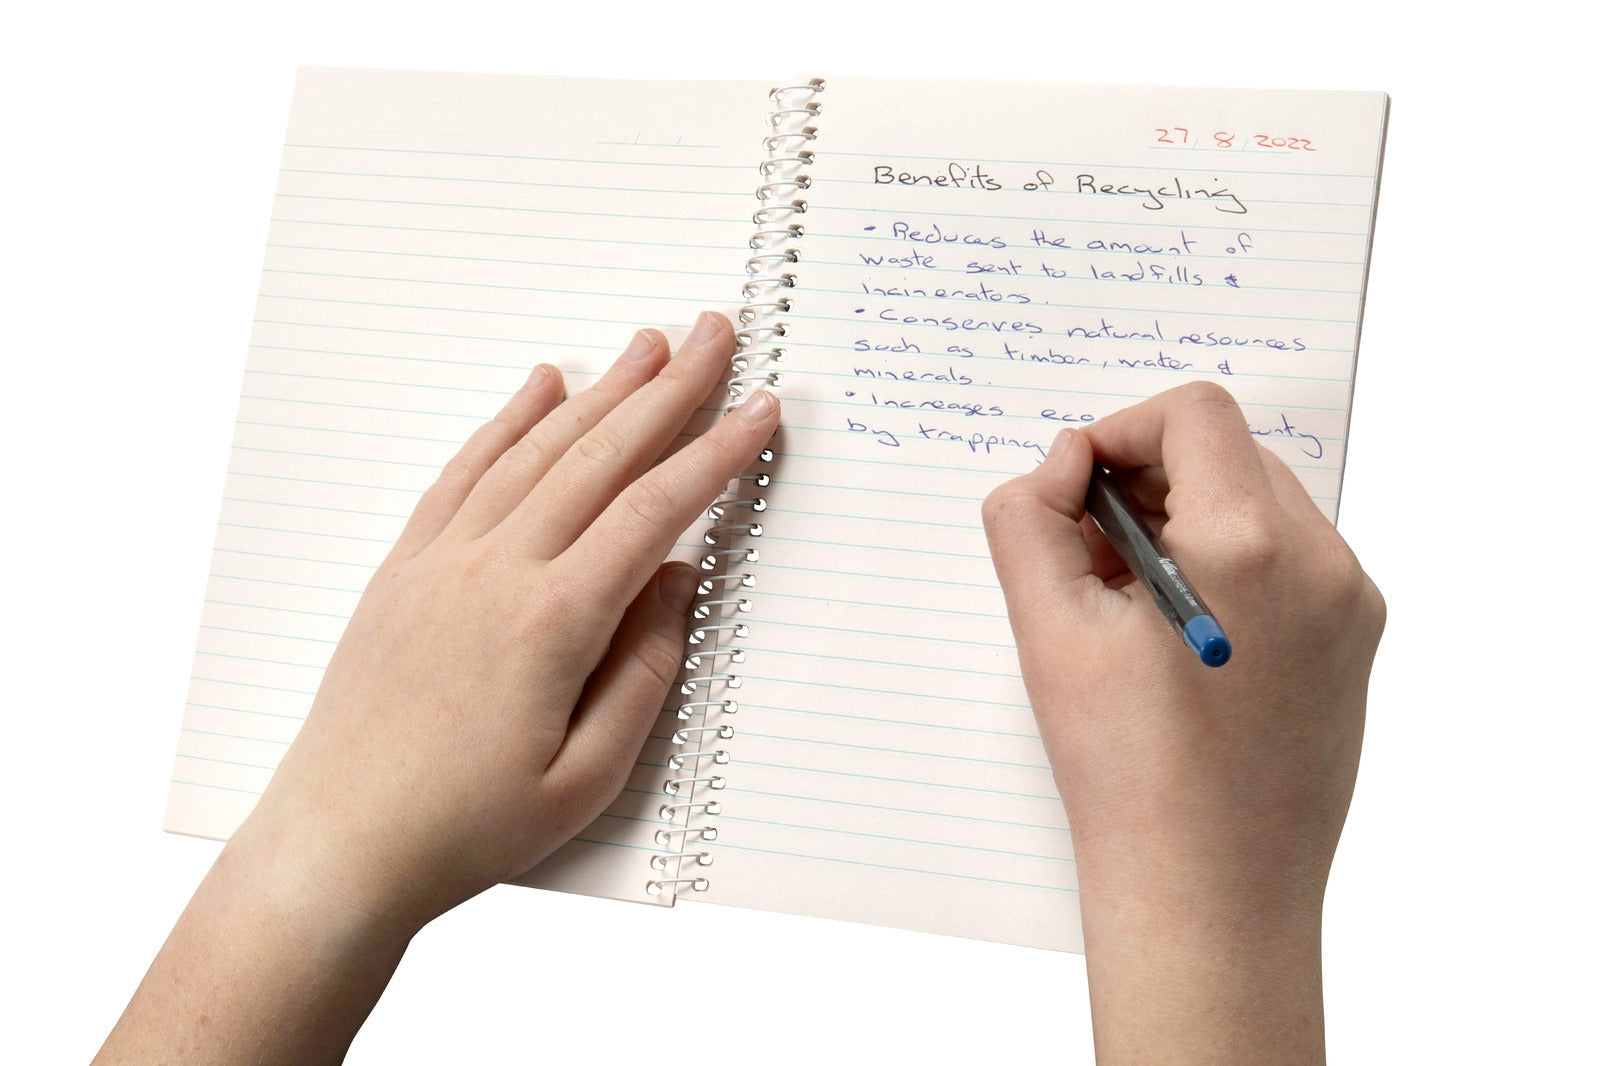 27/8/2022
Benefits of Recycling
• Reduces the amount of
waste sent to landfills &
incinerators.
• Conserves natural resources
such as timber, water &
minerals.
• Increases eco
by trapping